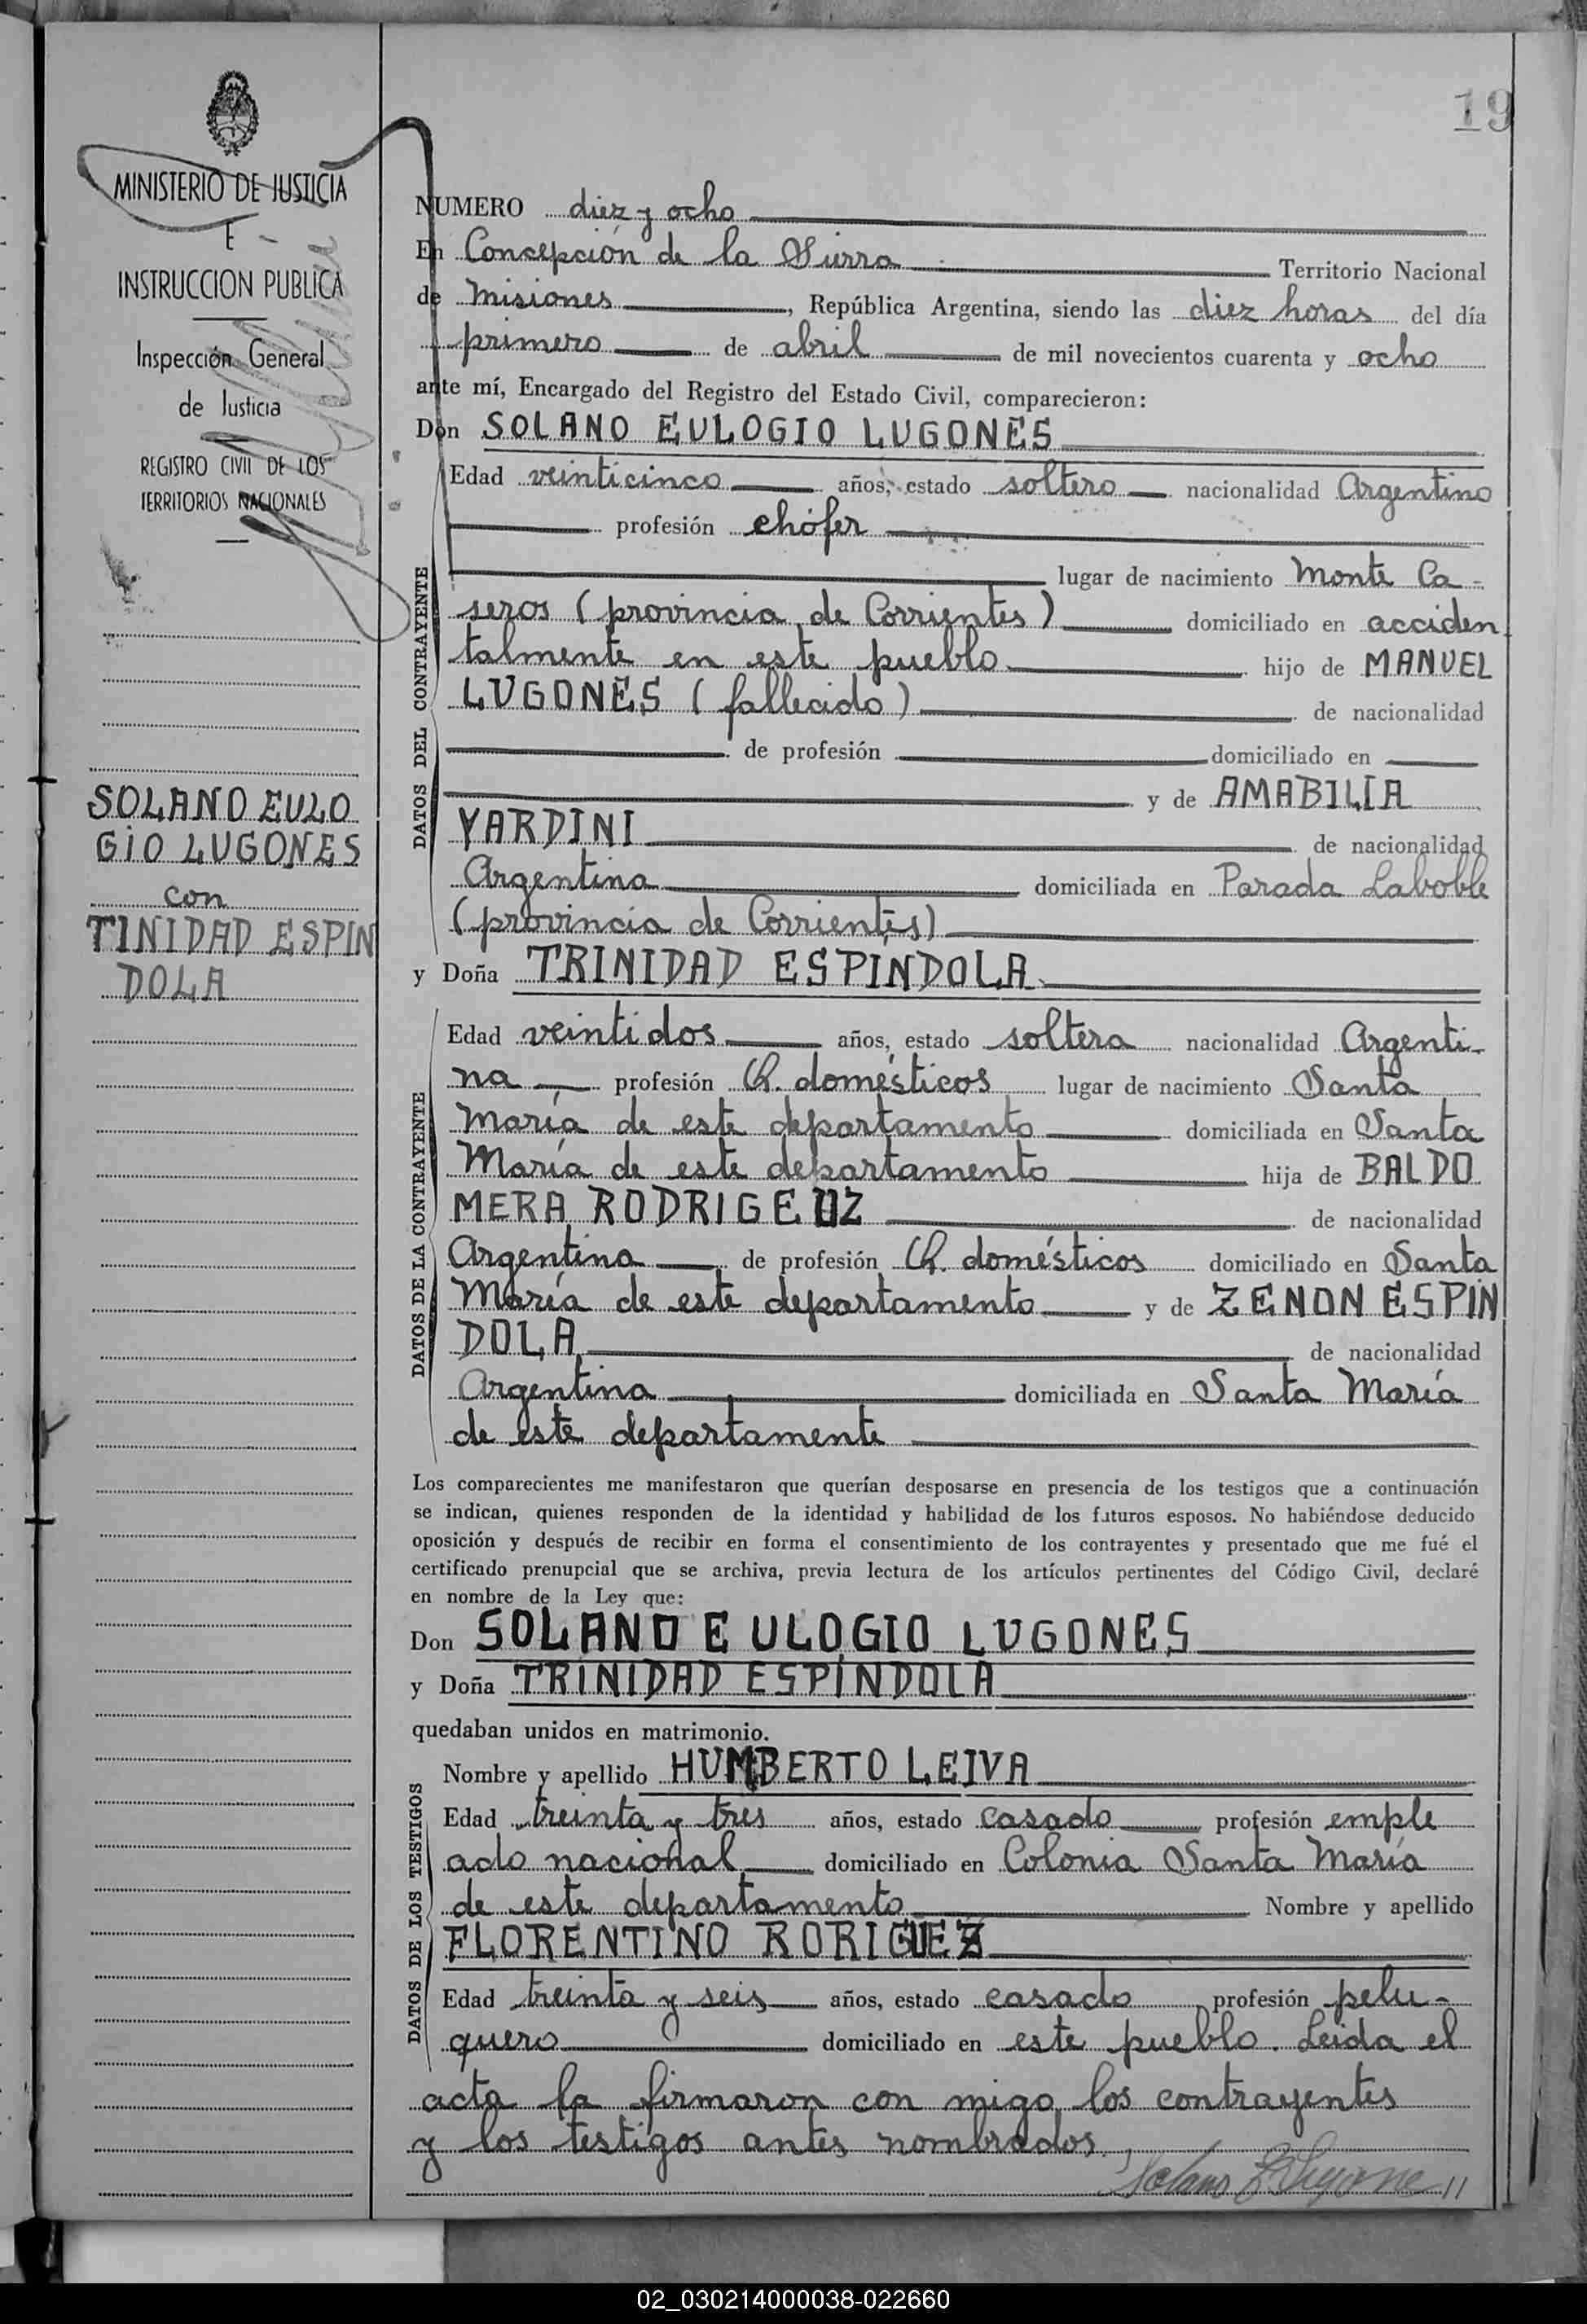 19
MINISTERIO DE JUSTICIA
E
INSTRUCCION PUBLICA
Inspección General
de Justicia
REGISTRO CIVIL DE LOS
TERRITORIOS NACIONALES
SOLANO EULO
GIO LUGONES
con
TINIDAD ESPIN
DOLA
NUMERO diez y ocho
En Concepción de la Sierra Territorio Nacional
de Misiones, República Argentina, siendo las diez horas del día
primero de abril de mil novecientos cuarenta y ocho
ante mí, Encargado del Registro del Estado Civil, comparecieron:
Don SOLANO EULOGIO LUGONES
DATOS DEL CONTRAYENTE
Edad veinticinco años, estado soltero nacionalidad Argentino
profesión chófer
lugar de nacimiento Monte Ca-
seros (provincia de Corrientes) domiciliado en acciden
talmente en este pueblo hijo de MANUEL
LUGONES (fallecido) de nacionalidad
de profesión domiciliado en
y de AMABILIA
YARDINI de nacionalidad
Argentina domiciliada en Parada Laboble
(provincia de Corrientes)
y Doña TRINIDAD ESPINDOLA
DATOS DE LA CONTRAYENTE
Edad veintidos años, estado soltera nacionalidad Argenti-
na profesión Q. domésticos lugar de nacimiento Santa
María de este departamento domiciliada en Santa
María de este departamento hija de BALDO
MERA RODRIGEUZ de nacionalidad
Argentina de profesión Q. domésticos domiciliado en Santa
María de este departamento y de ZENON ESPIN
DOLA de nacionalidad
Argentina domiciliada en Santa María
de este departamente
Los comparecientes me manifestaron que querían desposarse en presencia de los testigos que a continuación
se indican, quienes responden de la identidad y habilidad de los futuros esposos. No habiéndose deducido
oposición y después de recibir en forma el consentimiento de los contrayentes y presentado que me fué el
certificado prenupcial que se archiva, previa lectura de los artículos pertinentes del Código Civil, declaré
en nombre de la Ley que:
Don SOLANO EULOGIO LUGONES
y Doña TRINIDAD ESPINDOLA
quedaban unidos en matrimonio.
DATOS DE LOS TESTIGOS
Nombre y apellido HUMBERTO LEIVA
Edad treinta y tres años, estado casado profesión emple
ado nacional domiciliado en Colonia Santa María
de este departamento Nombre y apellido
FLORENTINO RORIGUEZ
Edad treinta y seis años, estado casado profesión pelu-
quero domiciliado en este pueblo. Leida el
acta la firmaron con migo los contrayentes
y los testigos antes nombrados.
Solano E Lugone
02_030214000038-022660